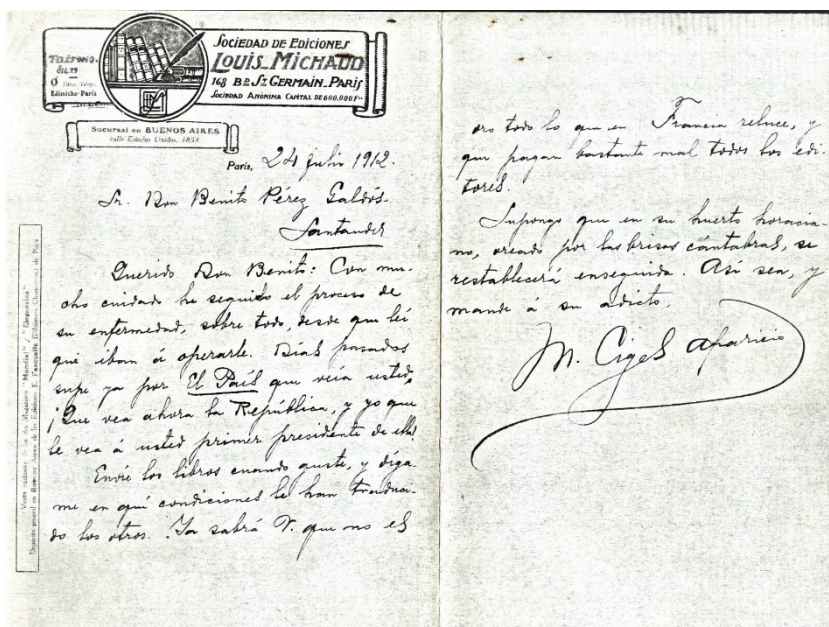 TELÉFONO.
SOCIEDAD DE EDICIONES
LOUIS-MICHAUD
168 Bd St GERMAIN-PARIS
SOCIEDAD ANÓNIMA CAPITAL DE 600,000 Frs
Ediniche-Paris
Sucursal en BUENOS AIRES
calle Estados Unidos,
Paris, 24 julio 1912.
Sr. Don Benito Pérez Galdós.
Santander
Querido Don Benito: Con mu-
cho cuidado he seguido el proceso de
su enfermedad, sobre todo, desde que leí
que iban á operarle. Días pasados
supe ya por El País que veía usted.
¡Que vea ahora la República, y yo que
le vea á usted primer presidente de ella!
Envíe los libros cuando guste, y díga-
me en qué condiciones le han traduci-
do los otros. Ya sabrá V. que no es
oro todo lo que en Francia reluce, y
que pagan bastante mal todos los edi-
tores.
Supongo que en su huerto horacia-
no, oreado por las brisas cántabras, se
restablecerá enseguida. Así sea, y
mande á su adicto,
M. Ciges Aparicio